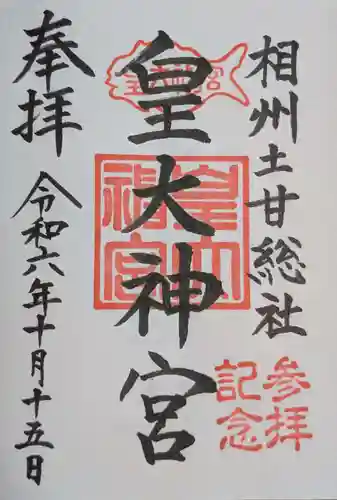 相州土甘総社
皇大神宮
奉拝
令和六年十月十五日
皇大神宮
皇大神宮
参拝
記念